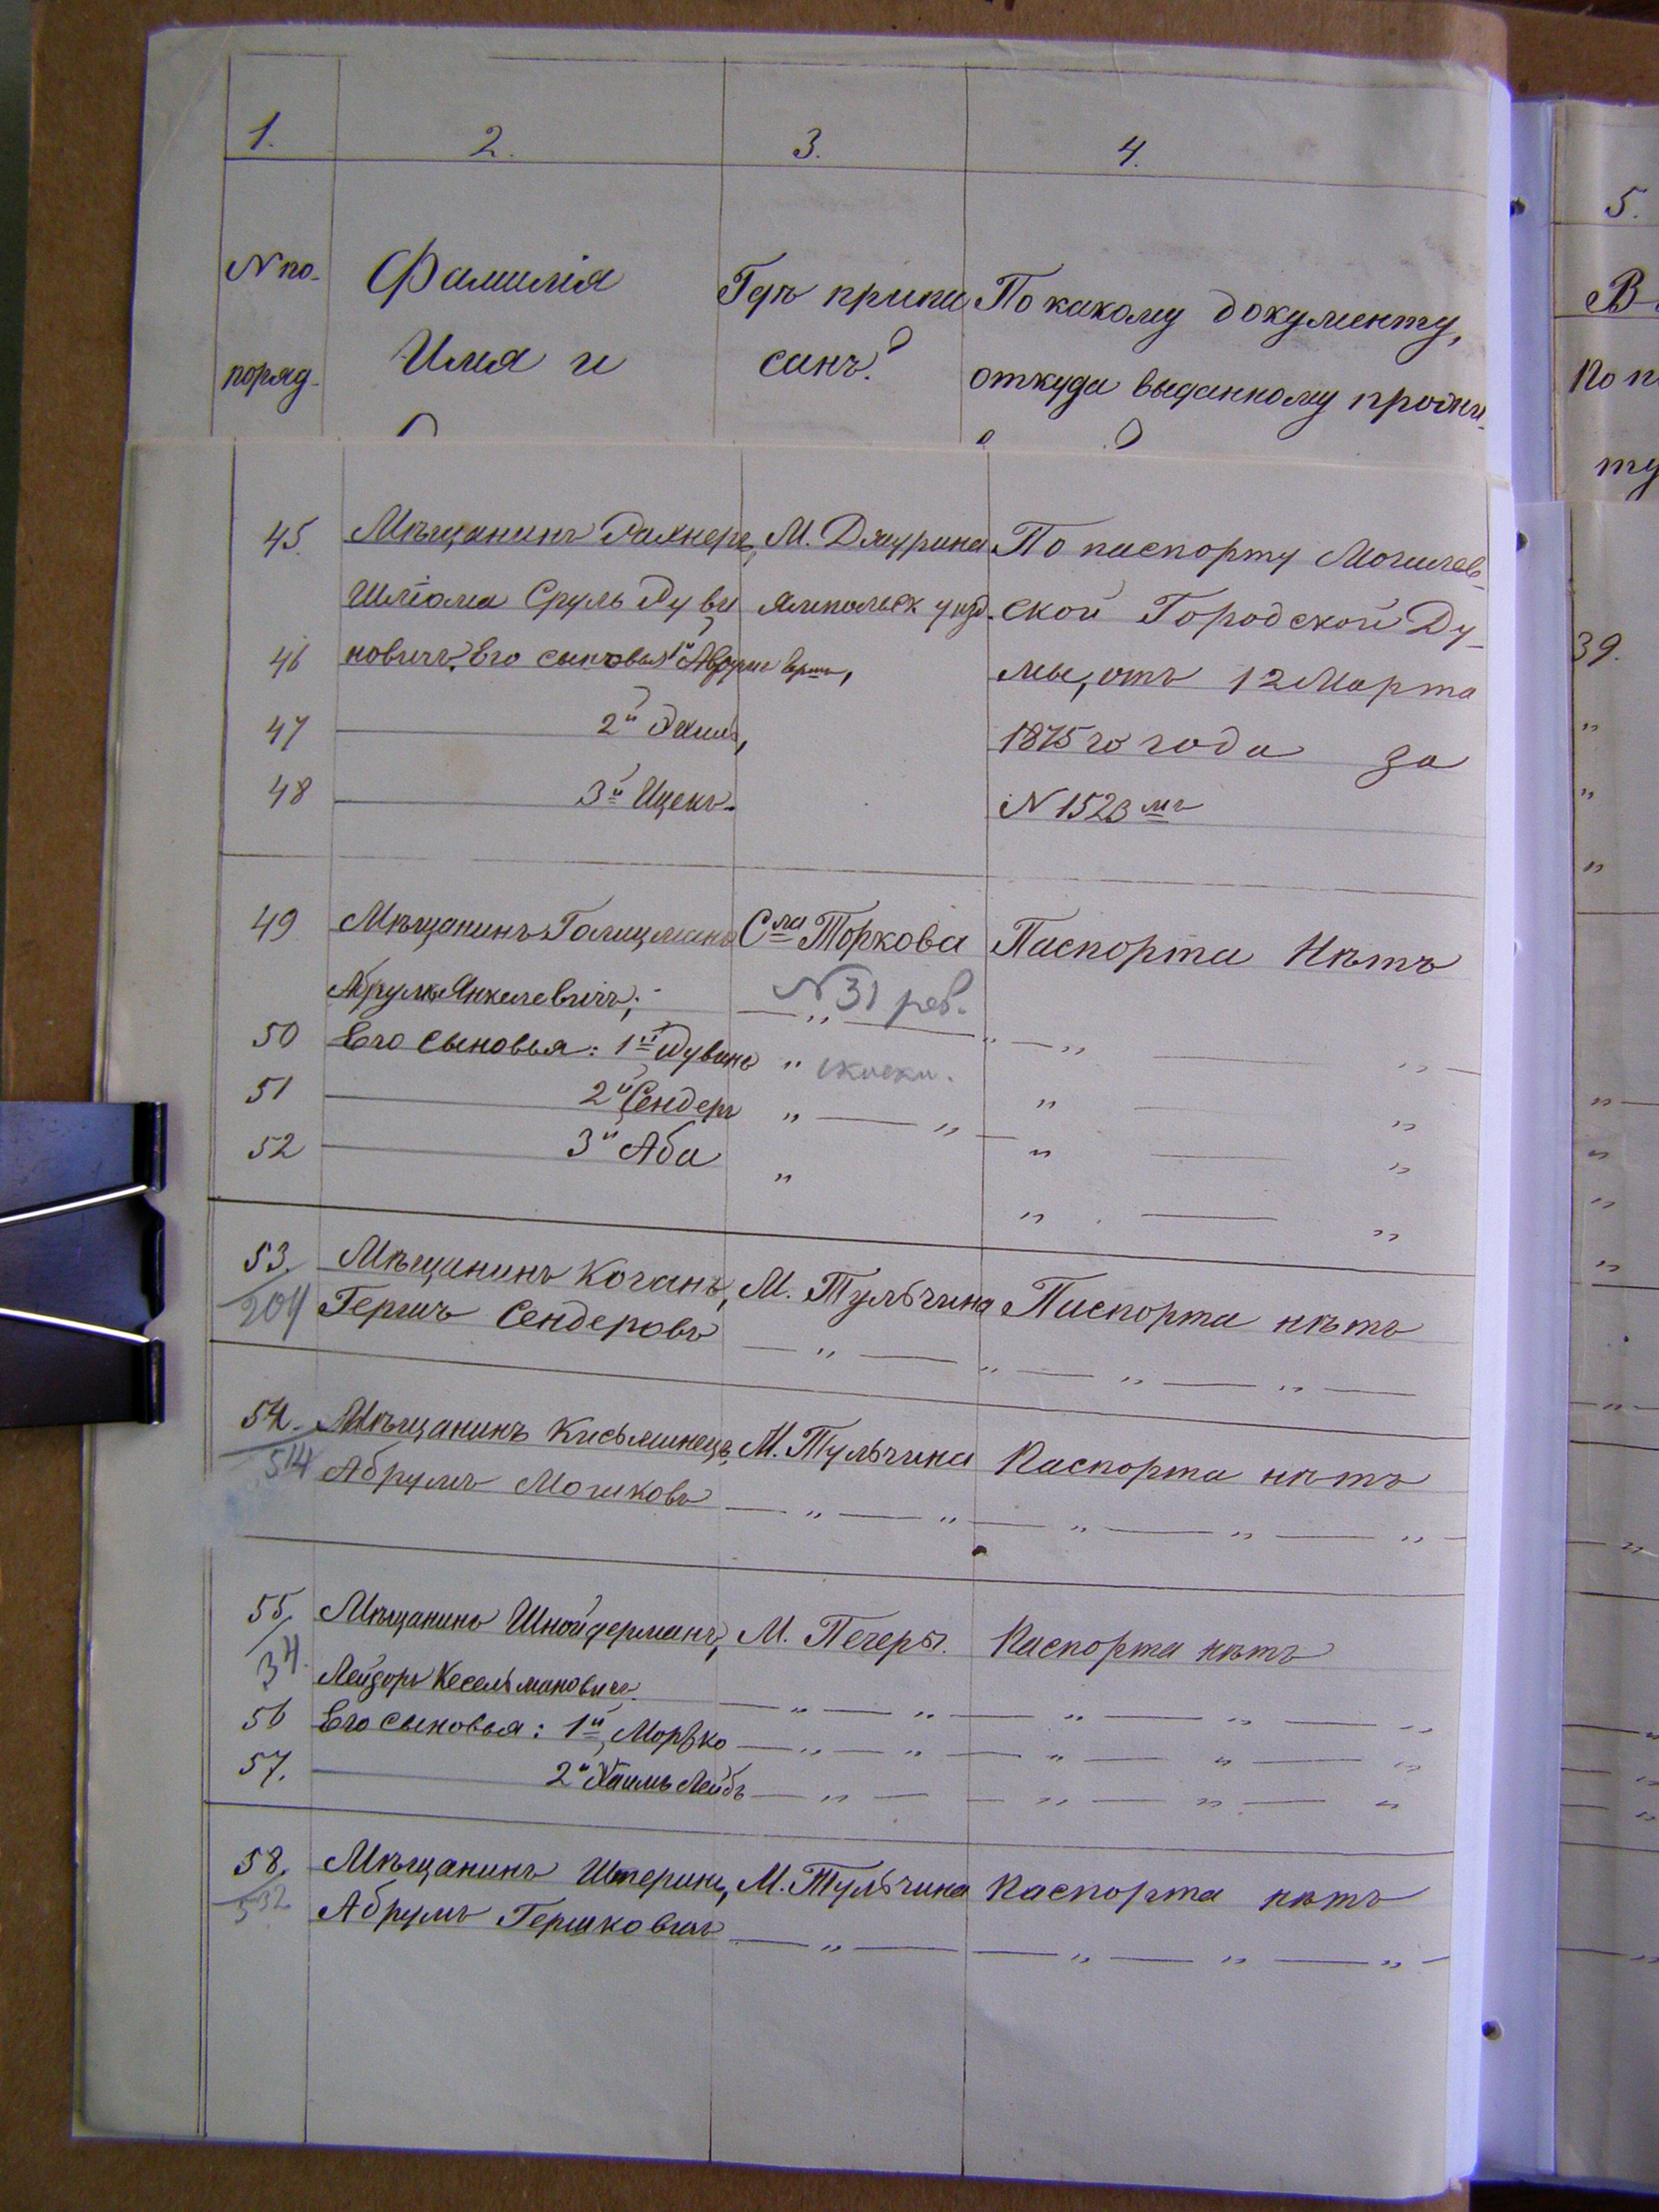 1. 2. 3. 4.
5.
№ по- Фамилія Гдѣ припи По какому документу,
поряд. Имя и санъ? откуда выданному прожи-
В
по п
ту
45. Мѣщанинъ М. Джурина По паспорту Могилев-
Шліома Сруль Дуви Ямпольск уѣзд. ской Городской Ду-
46 новичъ, Его сыновья 1й мы, отъ 12 Марта
47 2й 1875 го года за
48 3й Ицекъ. № 1523 мъ
39.
49 Мѣщанинъ Голицманъ Сла Торкова Паспорта Нѣтъ
Абрумъ Янкелевичъ; № 31 рев.
50 Его сыновья: 1й Дувинъ " скаски.
51 2й Сендеръ " — "
52 3й Аба "
53. Мѣщанинъ Коганъ, М. Тульчина Паспорта нѣтъ
204 Гершъ Сендеровъ — " —
54. Мѣщанинъ Кисьминецъ, М. Тульчина Паспорта нѣтъ
514 Абрумъ Мошковъ — " — "
55. Мѣщанинъ Шнойдерманъ, М. Печеры. Паспорта нѣтъ
34. Лейзоръ Кесельмановичъ. — " — "
56 Его сыновья: 1й Мордко — " — "
57. 2й Хаимъ Лейбъ — " —
58. Мѣщанинъ Штеринъ, М. Тульчина Паспорта нѣтъ
532 Абрумъ Гершковичъ — " —